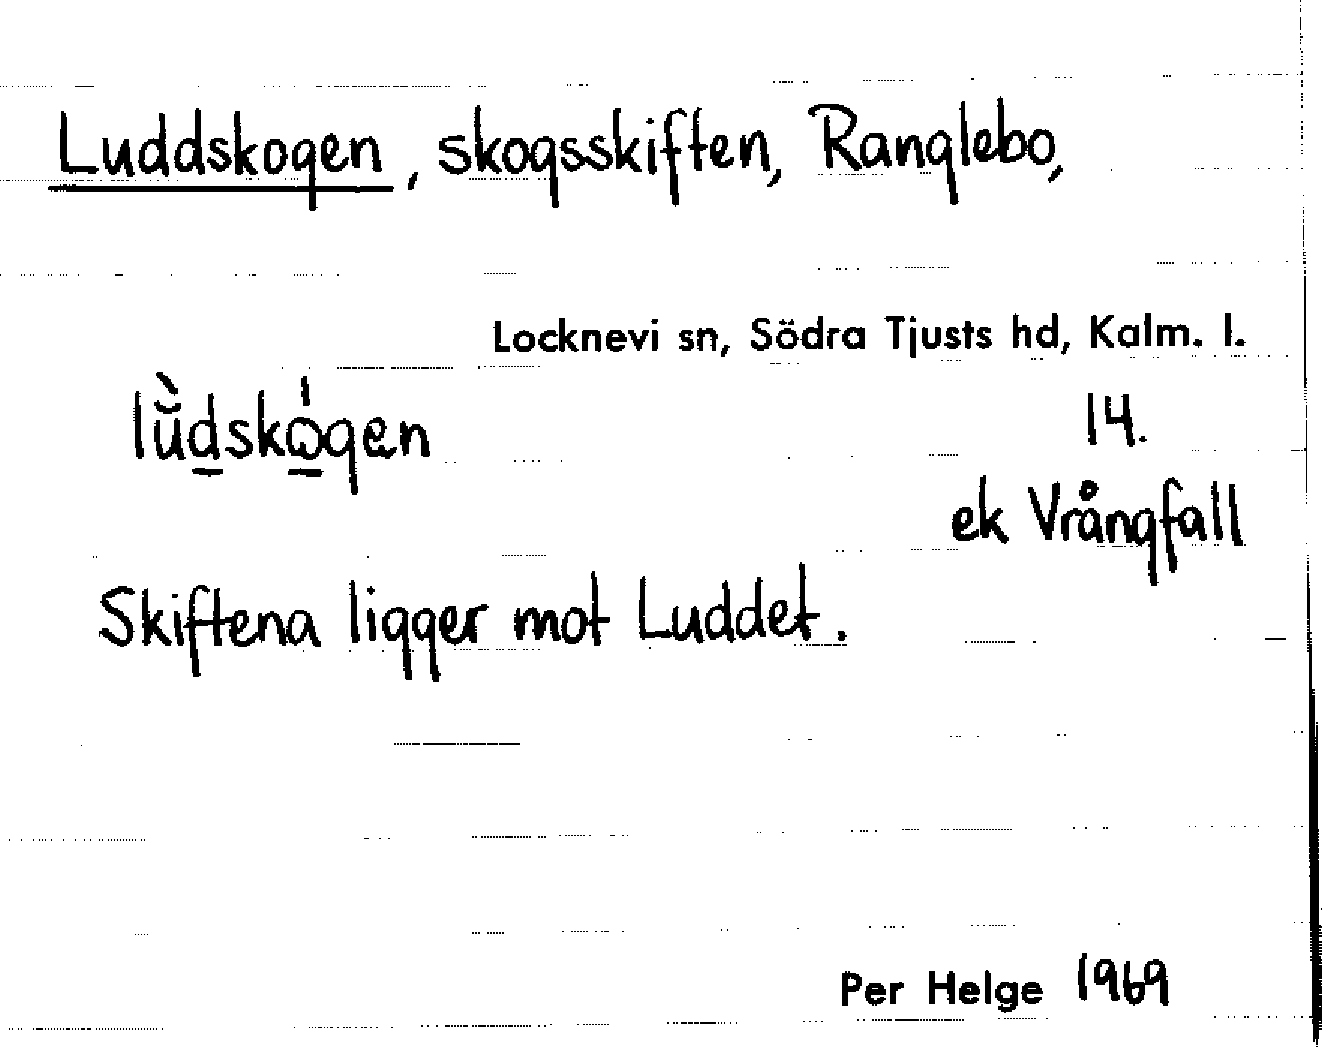 Luddskogen, skogsskiften, Ranglebo,
Locknevi sn, Södra Tjusts hd, Kalm. l.
lŭ̀dskǫ́gen
14.
ek Vrångfall
Skiftena ligger mot Luddet.
Per Helge 1969